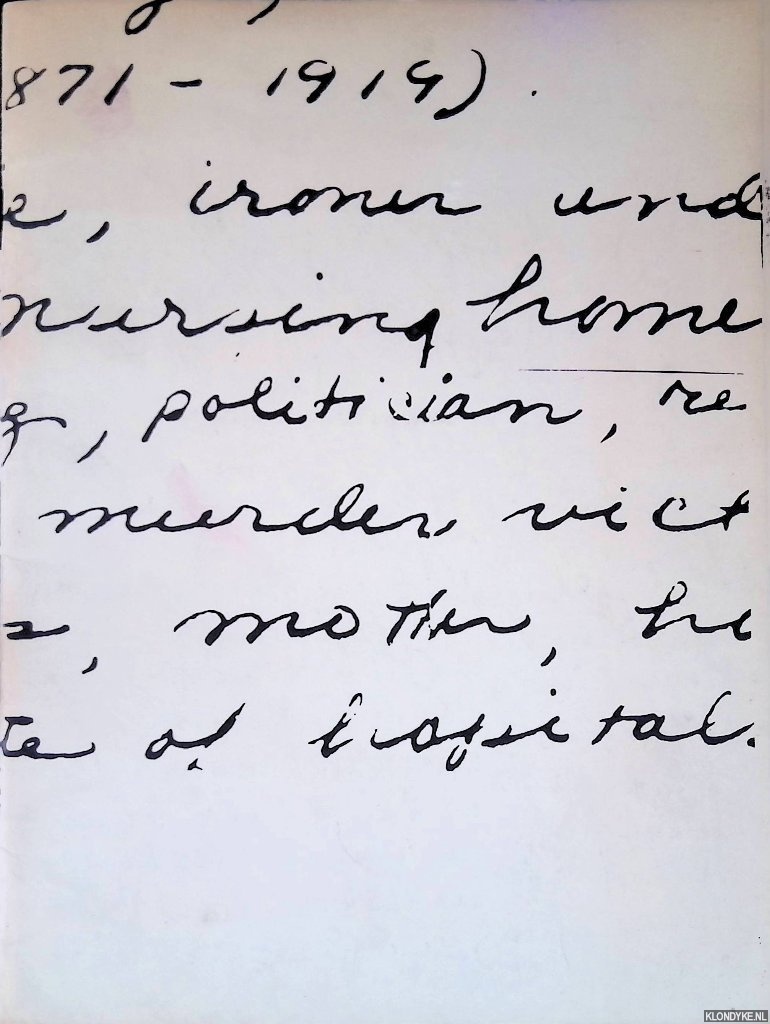 871 - 1919).
e, ironer und
nursing home
g, politician, re
murder vict
s, mother, he
te of hospital.
KLONDYKE.NL